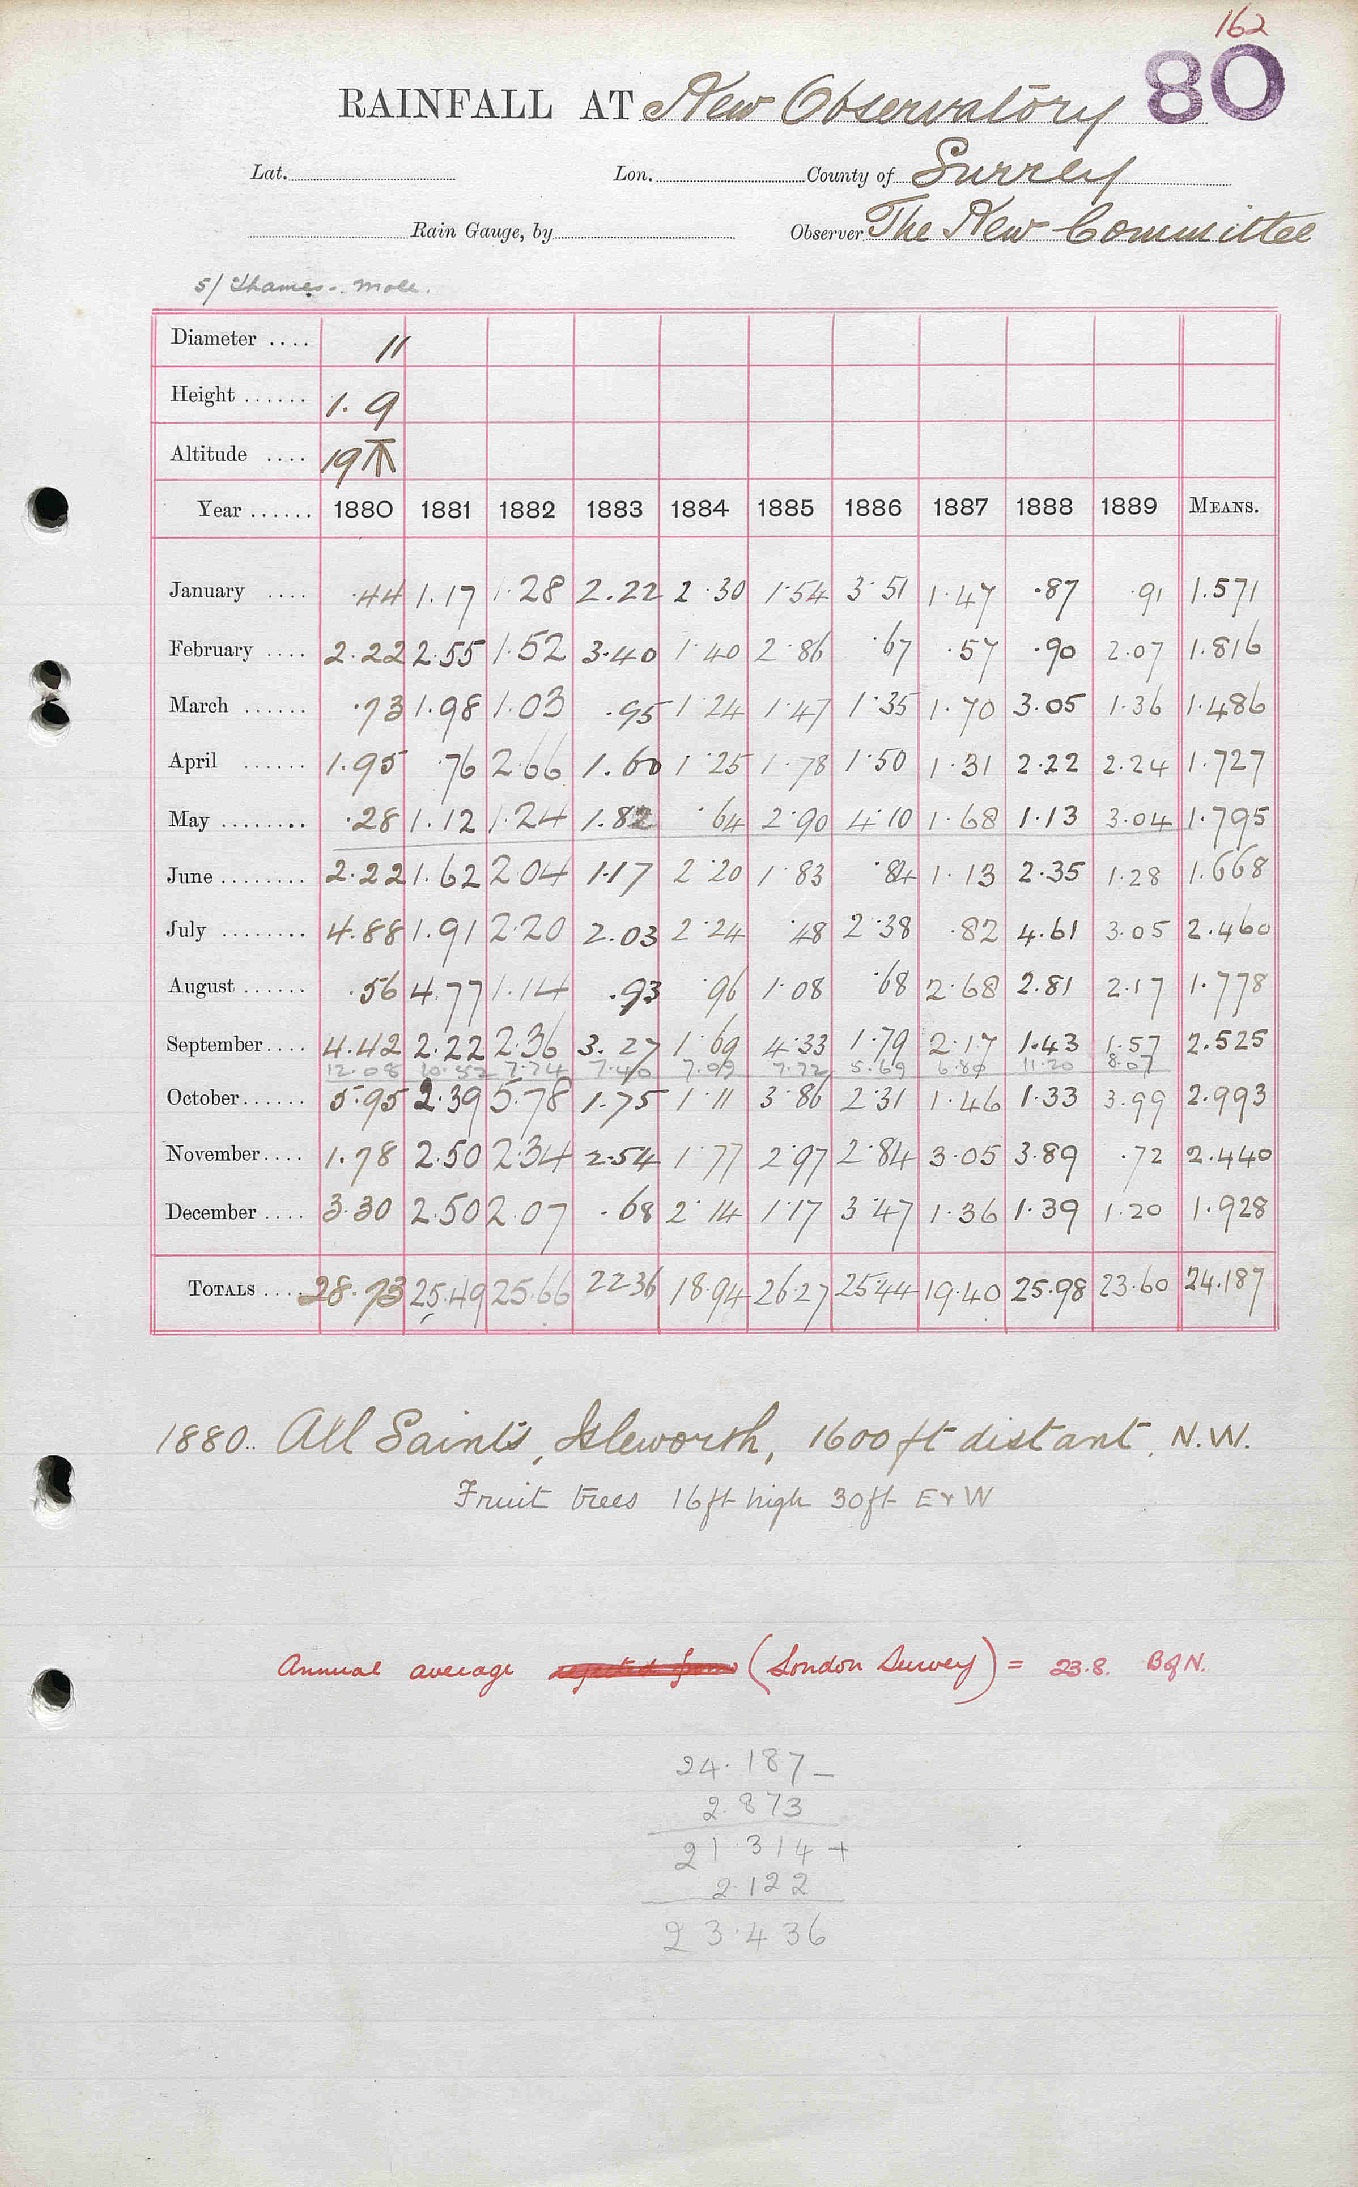 162
80
RAINFALL AT Kew Observatory
Lat. Lon. County of Surrey
Rain Gauge, by Observer The Kew Committee
5/ Thames - Mole.
Diameter .... 11
Height ...... 1. 9
Altitude .... 19
Year ...... 1880 1881 1882 1883 1884 1885 1886 1887 1888 1889 MEANS.
January .... .44 1.17 1.28 2.22 2.30 1.54 3.51 1.47 .87 .91 1.571
February .... 2.22 2.55 1.52 3.40 1.40 2.86 .67 .57 .90 2.07 1.816
March ...... .73 1.98 1.03 .95 1.24 1.47 1.35 1.70 3.05 1.36 1.486
April ...... 1.95 .76 2.66 1.60 1.25 1.78 1.50 1.31 2.22 2.24 1.727
May ........ .28 1.12 1.24 1.82 .64 2.90 4.10 1.68 1.13 3.04 1.795
June ........ 2.22 1.62 2.04 1.17 2.20 1.83 .84 1.13 2.35 1.28 1.668
July ........ 4.88 1.91 2.20 2.03 2.24 .48 2.38 .82 4.61 3.05 2.460
August ...... .56 4.77 1.14 .93 .96 1.08 .68 2.68 2.81 2.17 1.778
September.... 4.42 2.22 2.36 3.27 1.69 4.33 1.79 2.17 1.43 1.57 2.525
12.08 10.52 7.74 7.40 7.09 7.72 5.69 6.80 11.20 8.07
October...... 5.95 2.39 5.78 1.75 1.11 3.86 2.31 1.46 1.33 3.99 2.993
November.... 1.78 2.50 2.34 2.54 1.77 2.97 2.84 3.05 3.89 .72 2.440
December .... 3.30 2.50 2.07 .68 2.14 1.17 3.47 1.36 1.39 1.20 1.928
TOTALS .... 28.73 25.49 25.66 22.36 18.94 26.27 25.44 19.40 25.98 23.60 24.187
1880.. All Saints, Isleworth, 1600 ft distant. N.W.
Fruit trees 16ft high 30ft E & W
Annual average (London Survey) = 23.8. B of N.
24.187 -
2.873
21.314 +
2.122
23.436